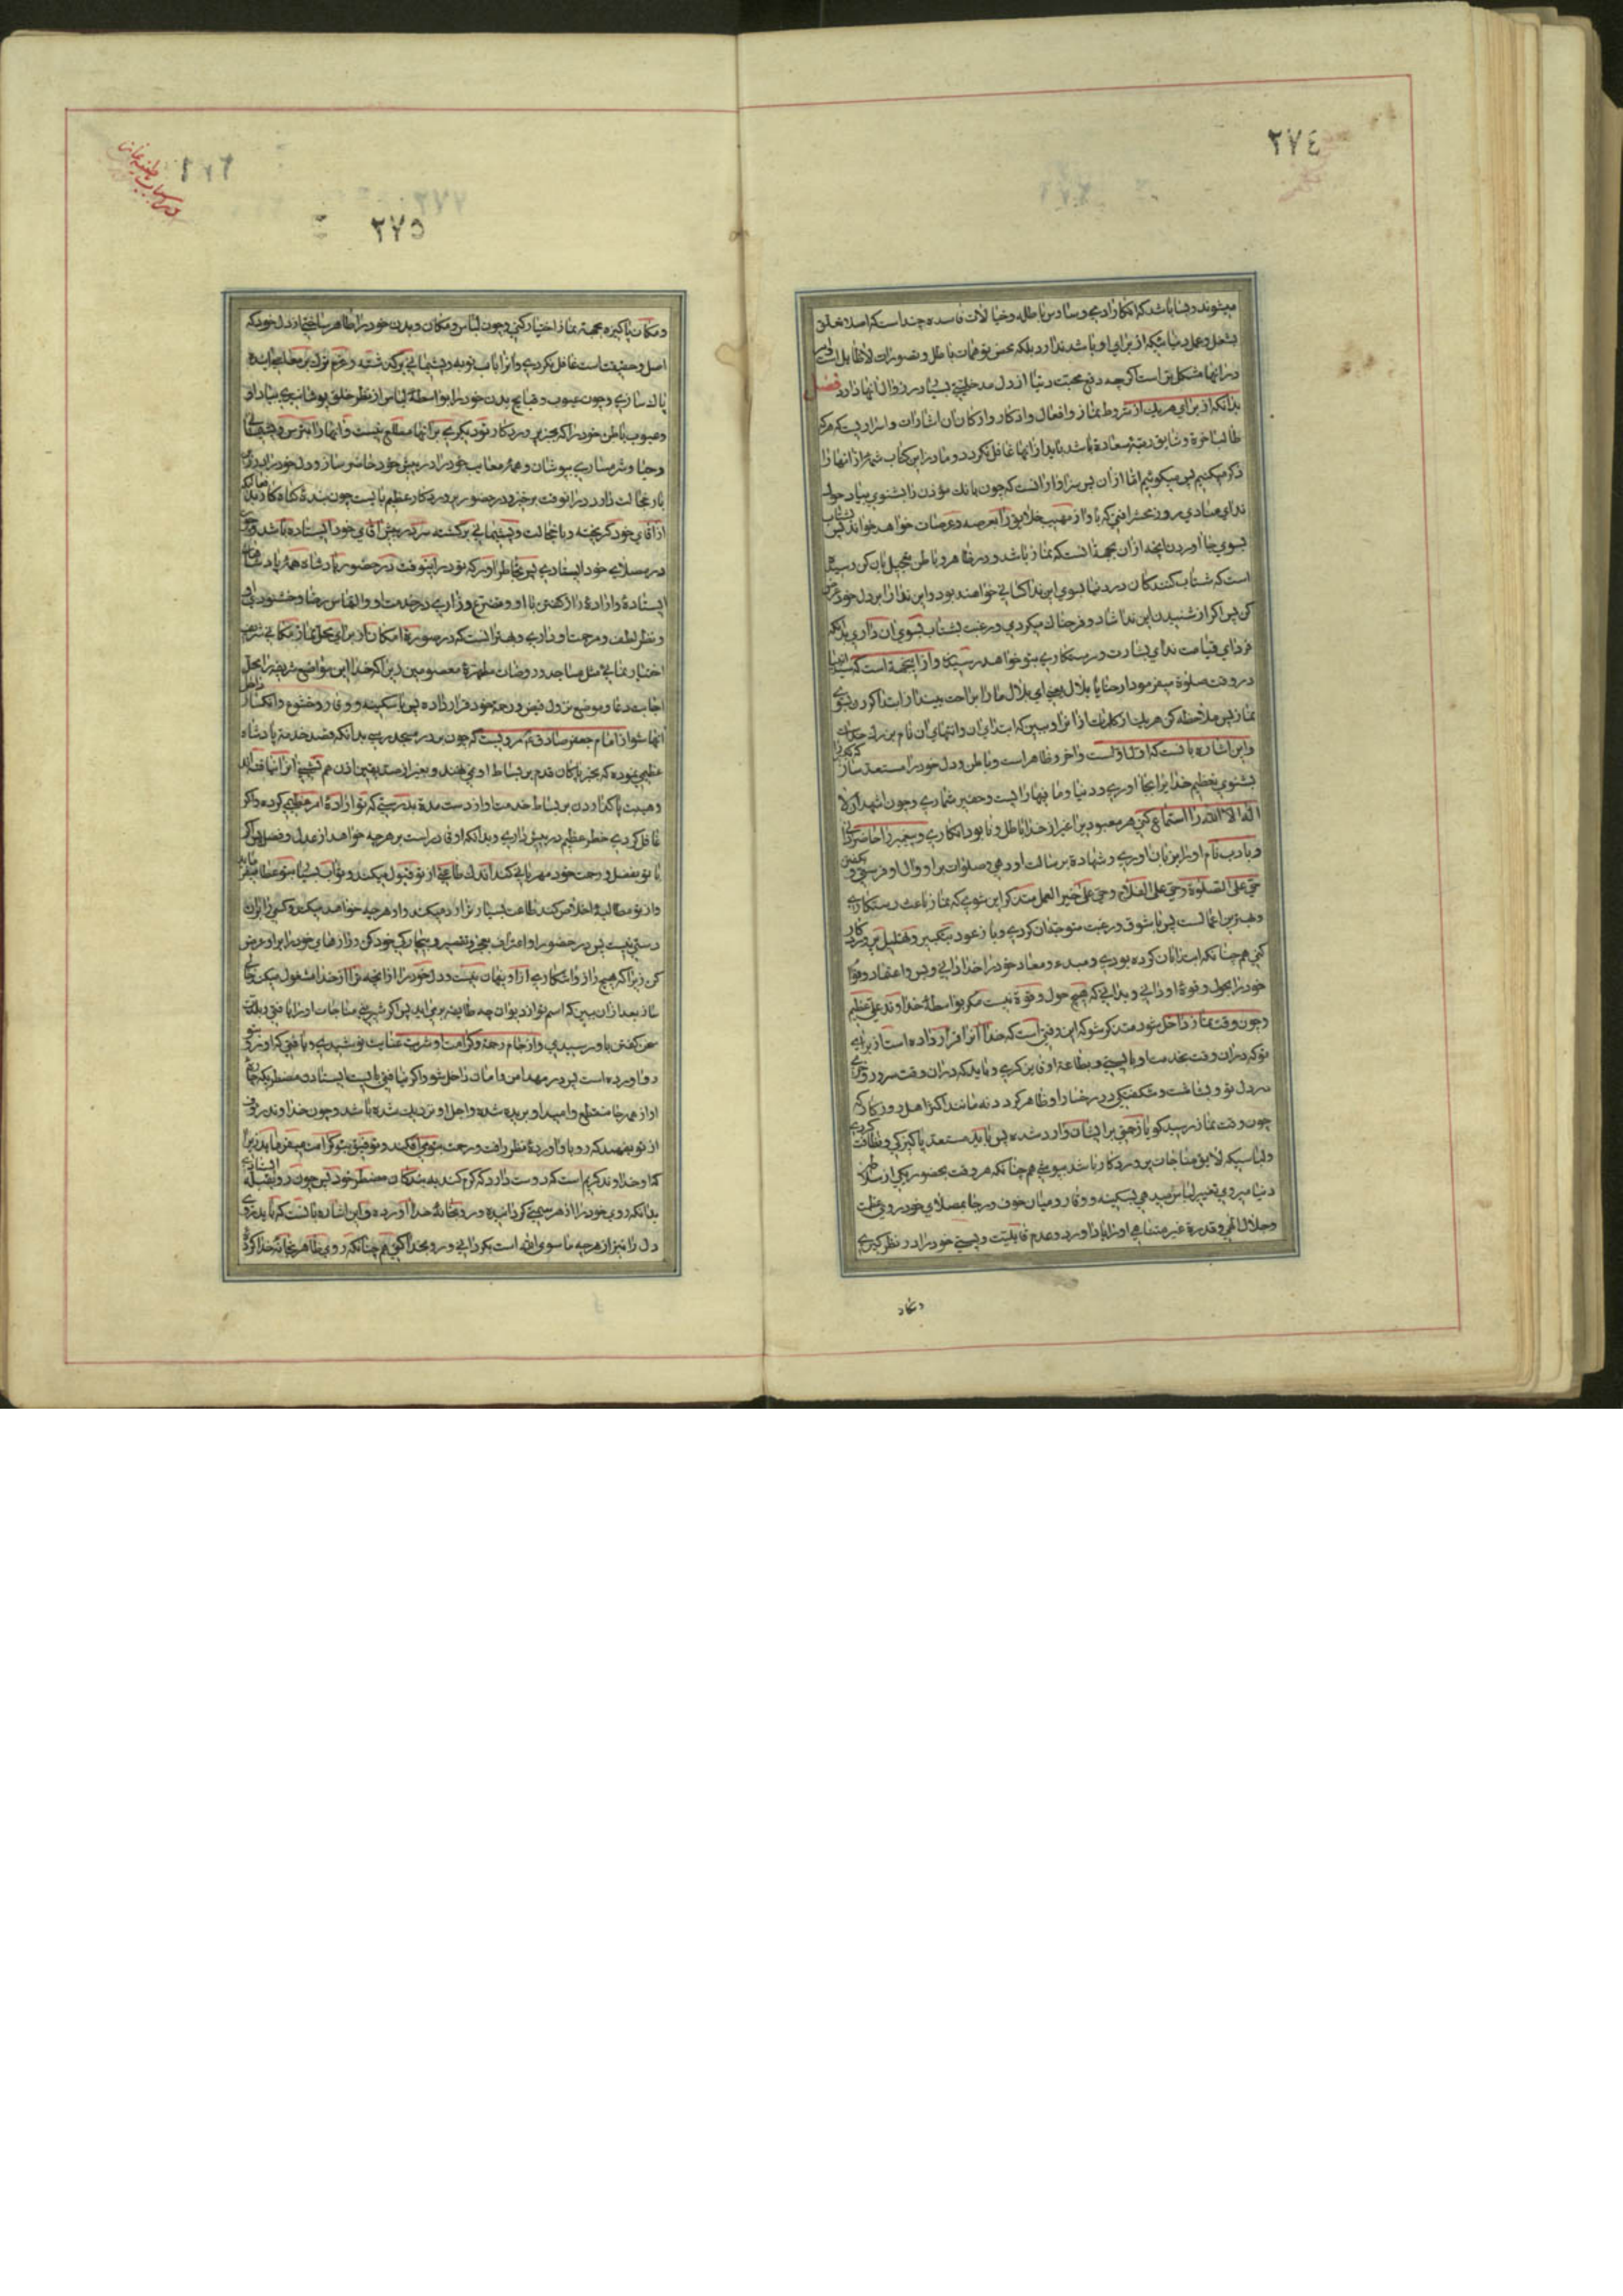 ٢٧٤
میشوند و بسا باشد که افکار ادمی وساوس باطله و خیالات فاسده چند است که اصلا تعلق
بشغل و عمل دنیائیکه از برای او باشد ندارد بلکه محض توهمات باطل و تصورات لاطایل است
در انها مشکل تر است اگر چه دفع محبت دنیا از دل مدخلیتی بسیار در زوال انها دارد فصل
بدانکه از برای هر یک از شروط نماز و افعال و اذکار و ارکان ان اشارات و اسراریست که هر که
طالب اخرة و شایق رتبه سعادة باشد باید از انها غافل نگردد و ما در این کتاب شمه از انها را
ذکر میکنیم پس میگوئیم اما اذان پس سزاوار انست که چون بانک مؤذن را بشنوی بیاد
ندای منادی روز محشر افتی که باواز مهیب خلایق را بعرصه عرصات خواهد خواند پس
بسوی بجا اوردن انچه اذان بجهة انست که نماز باشد و در ظاهر و باطن تعجیل بان کن
است که شتاب کنندکان در دنیا بسوی این ندا کسانی خواهند بود و این ندا را بر دل خود
کن پس اگر از شنیدن این ندا شاد و فرحناک میگردی و رغبت بشتاب بسوی ان داری بدانکه
فردای قیامت ندای بشارت و رستکاری بتو خواهد رسید و از اینجهة است که
در وقت صلوة میفرمود ارحنا یا بلال یعنی ای بلال ما را براحت بینداز
نماز پس ملاحظه کن هر یک از کلمات اذان را و ببین که ابتدای ان و انتهای ان نام بزرک خداست
و این اشاره بانست که اول اوست و اخر و ظاهر است و باطن و دل خود را مستعد ساز
بشنوی تعظیم خدا را بجا اوری و دنیا و ما فیها را پست و حقیر شماری و چون اشهد ان لا
اله الا الله را استماع کنی هر معبودیرا غیر از خدا باطل و نابود انکاری و پیغمبر را حاضر
و بادب نام او را بر زبان اوری و شهادة برسالت او دهی و صلوات بر او و ال او فرستی و
حی علی الصلوة و حی علی الفلاح و حی علی خیر العمل متذکر این شوی که نماز باعث رستکاری
و بهترین اعمالست پس با شوق و رغبت متوجه ان کردی و باز عود بتکبیر و تهلیل
کنی هم چنانکه ابتدا بان کرده بودی و مبدء و معاد خود را خدا دانی و بس و اعتماد
خود را بحول و قوة او دانی و بدانی که هیچ حول و قوة نیست مکر بواسطه خداوند علی عظیم
و چون وقت نماز داخل شود متذکر شو که این وقتی است که خدا انرا قرار داده است از برای
تو که در ان وقت بخدمت او بایستی و بطاعة او فایز کردی و باید که در ان وقت سرور
در دل تو و بشاشت و شکفتکی در رخسار او ظاهر کردد نه مانند اکثر اهل روزکار که
چون وقت نماز رسید کویا زحمتی بر ایشان وارد شده پس باید مستعد پاکیزکی و نظافت
و لباسیکه لایق مناجات پروردکار باشد بپوشی هم چنانکه هر وقت بحضور یکی از سلاطین
دنیا میروی تغییر لباس میدهی بسکینه و وقار و میان خوف و رجا بمصلای خود روی
و جلال الهی و قدرة غیر متناهی او را یاد اورد و عدم قابلیت و پستی خود را در نظر کیری
٢٧٥
و مکان پاکیزه بجهة نماز اختیار کنی و چون لباس و مکان و بدن خود را ظاهر ساختی از دل خود که
اصل و حقیقت است غافل نکردی و انرا باب توبه و پشیمانی برکذشته و عزم ترک بر معاصی اینده
پاک سازی و چون عیوب و قبایح بدن خود را بواسطه لباس از نظر خلق پوشانیدی بیاد اور
و عیوب باطن خود را که بجز پروردکار تو دیکری بر انها مطلع نیست و انها را بترس و پشیمانی
و حیا و شرمساری بپوشان و همه معایب خود را در پیش خود حاضر ساز و دل خود را
بار خجالت داور در انوقت برخیز و در حضور پروردکار عظیم بایست چون بنده کناه کار
از اقای خود کریخته و با خجالت و پشیمانی برکشته سر در پیش اقای خود ایستاده باشد و
در مصلای خود ایستادی پس بخاطر اور که تو در اینوقت در حضور پادشاه همه پادشاهان
ایستاده و اراده راز کفتن با او و تضرع و زاری در خدمت او و التماس رضا و خشنودی او
و نظر لطف و مرحمت او داری و بهتر انست که در صورة امکان از برای محل نماز مکانی شریف
اختیار نمائی مثل مساجد و روضات مطهرة معصومین زیرا که خدا این مواضع شریفه را محل
اجابت دعا و موضع نزول فیض و رحمة خود قرار داده پس با سکینه و وقار و خشوع و انکسار
انها شو از امام جعفر صادق مرویست که چون بدر مسجد رسی بدانکه قصد خدمت پادشاه
عظیمی نموده که بجز پاکان قدم بر بساط او نمی نهند و بغیر از صدیقین
و هیبت پا کذاردن بر بساط خدمت او از دست مده بدرستی که تو اراده امر عظیمی کرده و اکر
غافل کردی خطر عظیم در پیش داری و بدانکه او قادر است بر هر چه خواهد از عدل و فضل پس اکر
با تو بفضل و رحمت خود مهربانی کند اندک طاعتی از تو قبول میکند و ثواب بسیار بتو عطا میفرماید
و از تو مطالبه اخلاص کند طاعت بسیار ترا رد میکند و او هر چه خواهد میکند و کسی را بر ان
دستی نیست پس در حضور او اعتراف بعجز و تقصیر و بیچارکی خود کن و رازهای خود را بر او عرض
کن زیرا که هیچ راز و اشکاری از او پنهان نیست و دل خود را از انچه ترا از خدا مشغول میکند
ساز بعد از ان ببین که اسم تو از دیوان چه طایفه برمی اید پس اکر شیرینی مناجات او را یافتی و بلذت
سخن کفتن با و رسیدی و از جام رحمة و کرامت او شربت عنایت نوشیدی و یافتی که او بتو
رو اورده است پس در مهد امن و امان داخل شو و اکر نیافتی بایست ایستادن مضطریکه
او از همه جا منقطع و امید او بریده شده و اجل او نزدیک شده باشد و چون خداوند رؤف
از تو بفهمد که رو باو اورده نظر رافت و رحمت بتو می افکند و توفیق بتو کرامت میفرماید زیرا
که او خداوند کریم است که دوست دارد که کرم کند به بندکان مضطر خود پس چون رو بقبله
بدانکه روی خود را از هر سمتی کردانیده و رو بخانه خدا اورده و این اشاره بانست که باید
دل را نیز از هر چه ما سوی الله است بکردانی و رو بخدا کنی هم چنانکه روی ظاهر بخانه خدا کرده